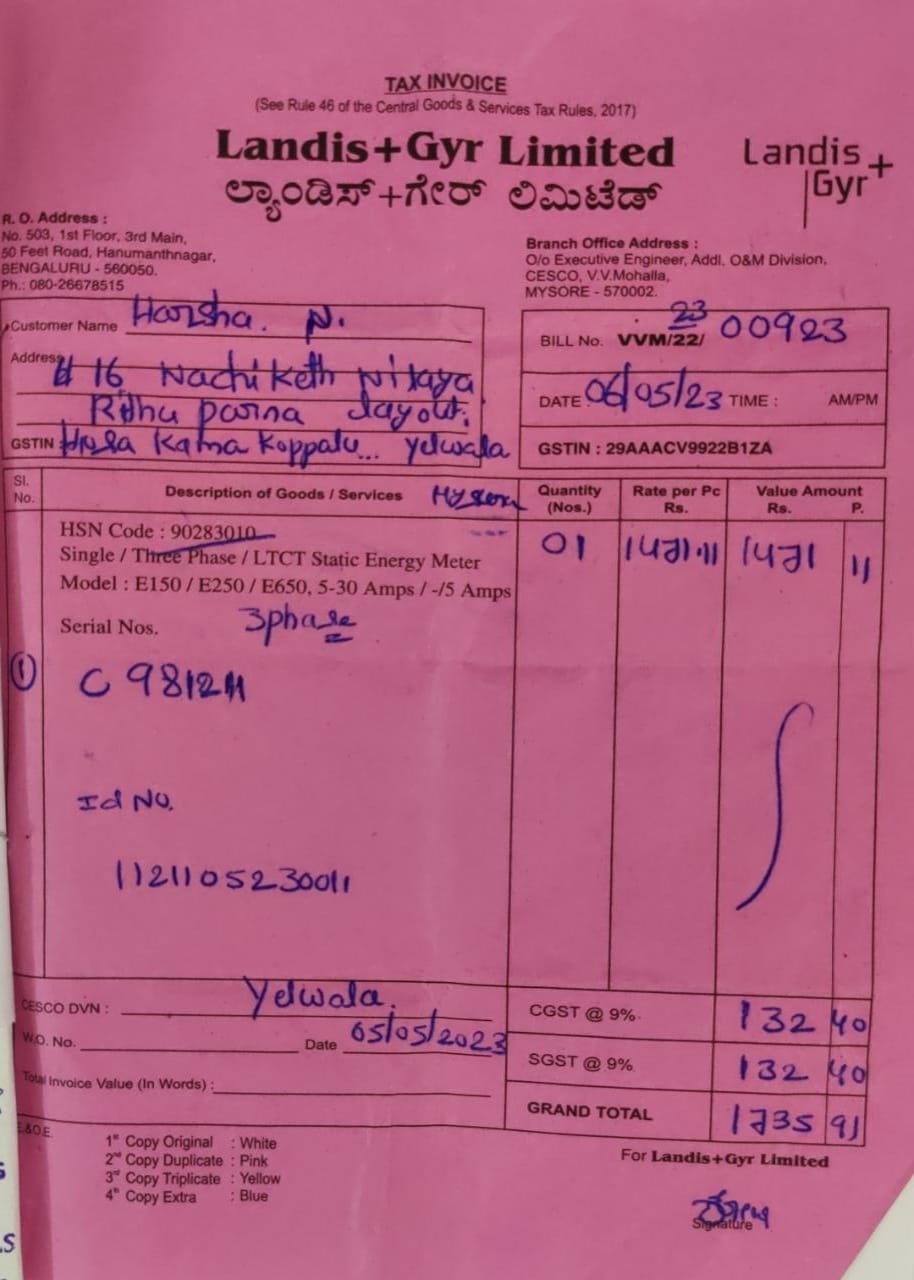 TAX INVOICE
(See Rule 46 of the Central Goods & Services Tax Rules, 2017)
Landis+Gyr Limited
ಲ್ಯಾಂಡಿಸ್+ಗೇರ್ ಲಿಮಿಟೆಡ್
Landis+
Gyr
R. O. Address :
No. 503, 1st Floor, 3rd Main,
50 Feet Road, Hanumanthnagar,
BENGALURU - 560050.
Ph.: 080-26678515
Branch Office Address :
O/o Executive Engineer, Addl. O&M Division,
CESCO, V.V.Mohalla,
MYSORE - 570002.
Customer Name Harsha. N.
Address # 16 Nachiketh Nilaya
Rithu parna layout.
GSTIN : Hosa Kama Koppalu... Yelwala
Mysore
BILL No. VVM/22/ 23 00923
DATE : 06/05/23 TIME : AM/PM
GSTIN : 29AAACV9922B1ZA
Sl. No. Description of Goods / Services Quantity (Nos.) Rate per Pc Rs. Value Amount Rs. P.
HSN Code : 90283010
Single / Three Phase / LTCT Static Energy Meter 01 1471.11 1471 11
Model : E150 / E250 / E650, 5-30 Amps / -/5 Amps
Serial Nos. 3phase
① C 981211
Id No.
1121105230011
CESCO DVN : Yelwala.
W.O. No. Date 05/05/2023
Total Invoice Value (In Words) :
CGST @ 9% 132 40
SGST @ 9% 132 40
GRAND TOTAL 1735 91
E.&O.E.
1st Copy Original : White
2nd Copy Duplicate : Pink
3rd Copy Triplicate : Yellow
4th Copy Extra : Blue
For Landis+Gyr Limited
Signature